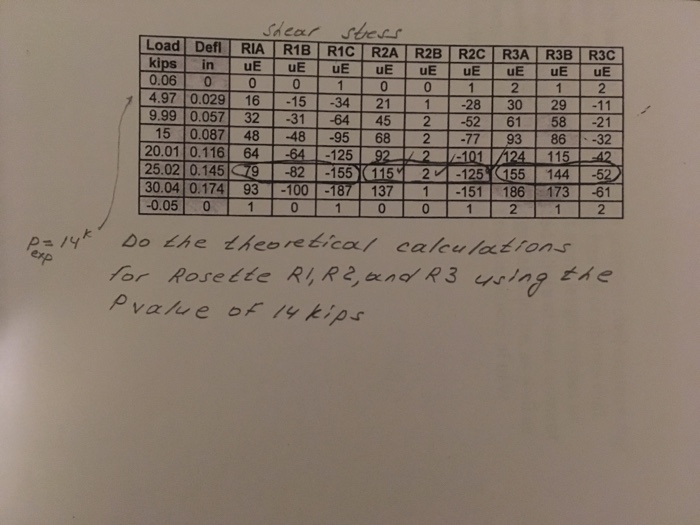 Shear stress
Load Defl RIA R1B R1C R2A R2B R2C R3A R3B R3C
kips in uE uE uE uE uE uE uE uE uE
0.06 0 0 0 1 0 0 1 2 1 2
4.97 0.029 16 -15 -34 21 1 -28 30 29 -11
9.99 0.057 32 -31 -64 45 2 -52 61 58 -21
15 0.087 48 -48 -95 68 2 -77 93 86 -32
20.01 0.116 64 -64 -125 92 2 -101 124 115 -42
25.02 0.145 79 -82 -155 115 2 -125 155 144 -52
30.04 0.174 93 -100 -187 137 1 -151 186 173 -61
-0.05 0 1 0 1 0 0 1 2 1 2
P = 14k
exp
Do the theoretical calculations
for Rosette R1, R2, and R3 using the
P value of 14 kips